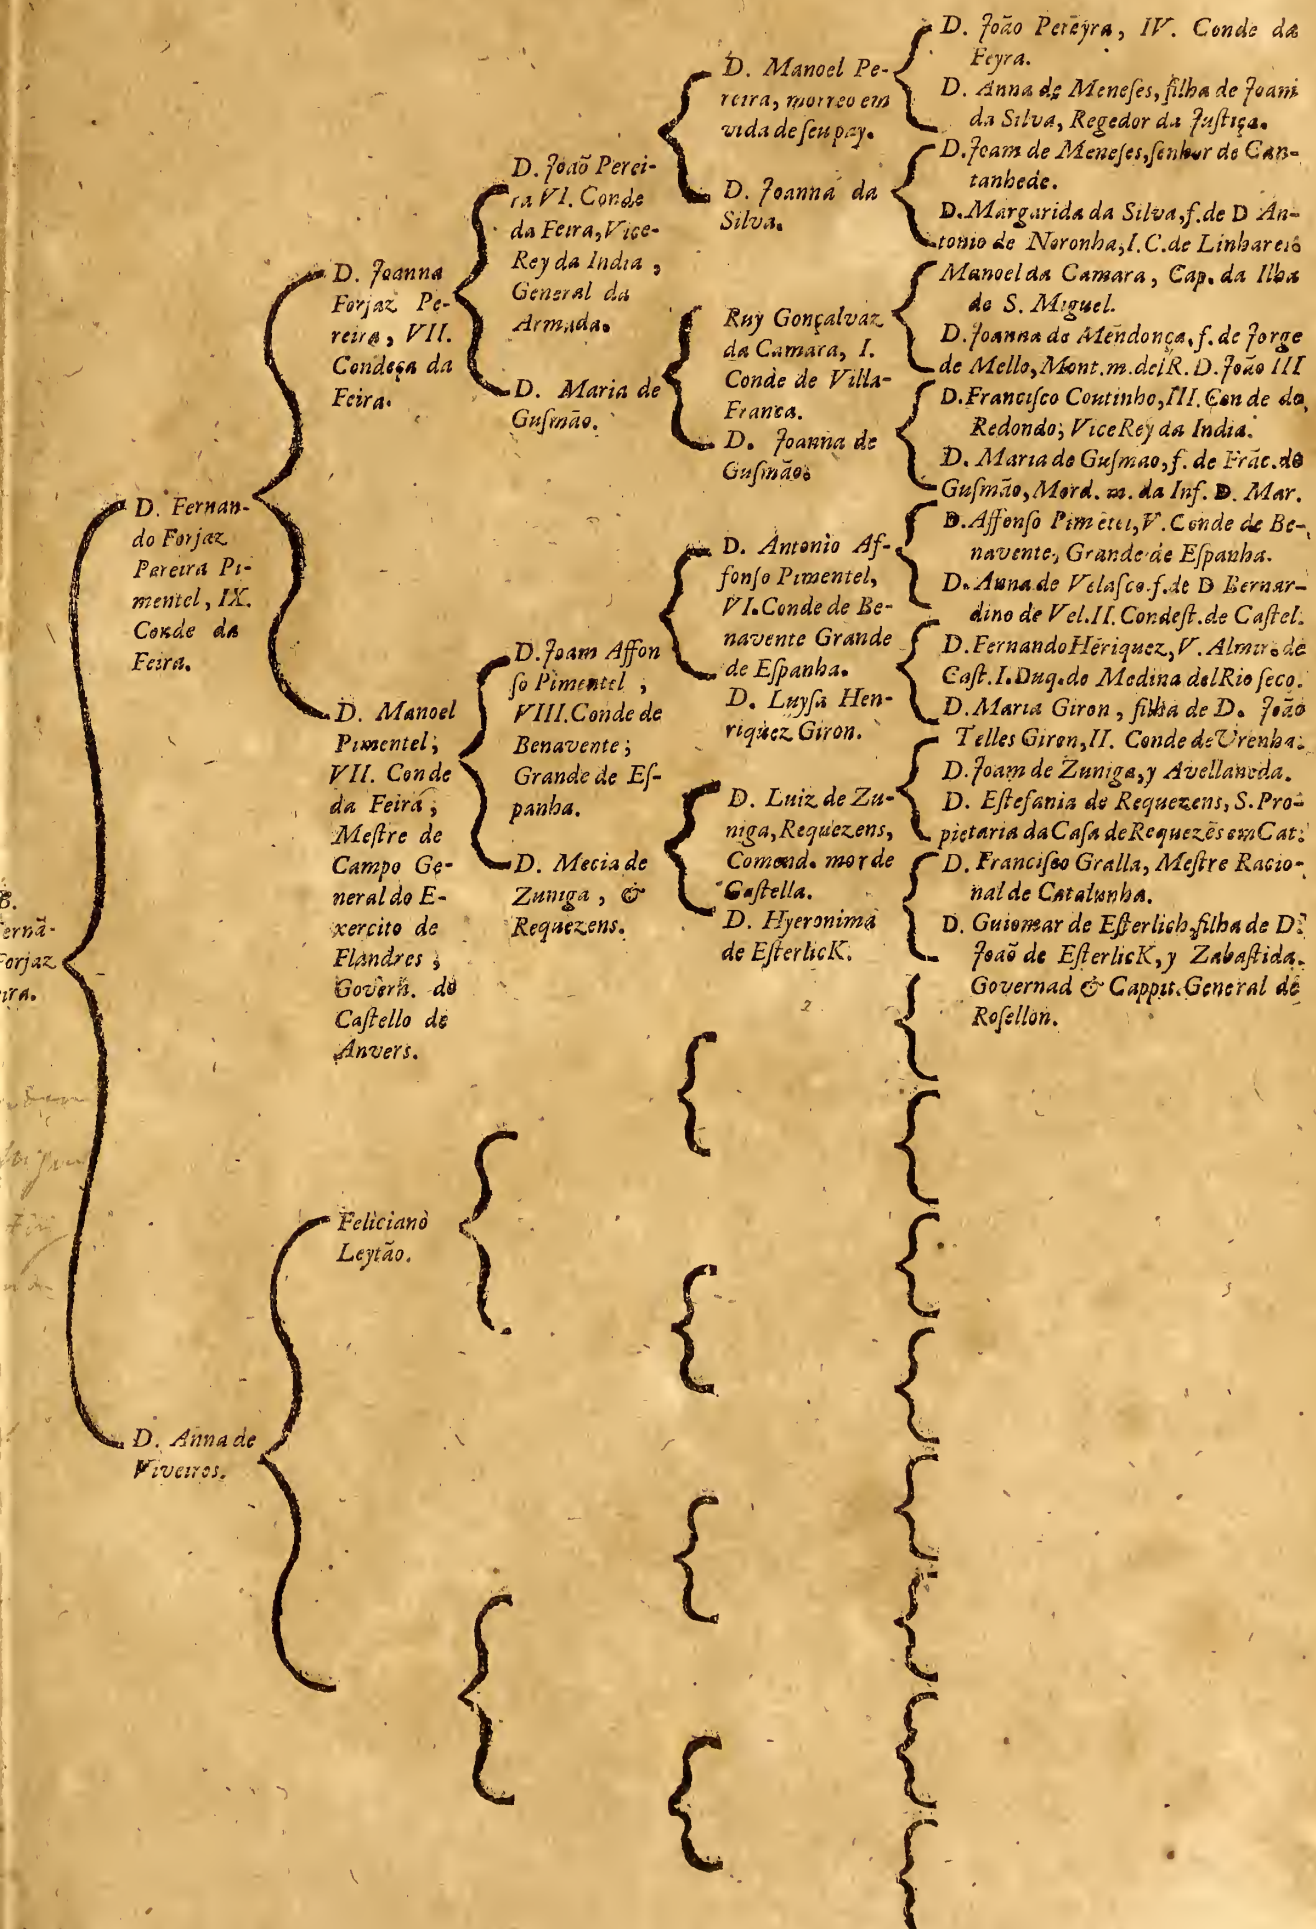 B.
Fernã-
Forjaz
eira.
D. Fernan-
do Forjaz
Pereira Pi-
mentel, IX.
Conde da
Feira.
D. Anna de
Viveiros.
D. Joanna
Forjaz Pe-
reira, VII.
Condeça da
Feira.
D. Manoel
Pimentel;
VII. Conde
da Feira;
Meſtre de
Campo Ge-
neral do E-
xercito de
Flandres;
Govern. do
Caſtello de
Anvers.
Feliciano
Leytão.
D. João Perei-
ra VI. Conde
da Feira, Vice-
Rey da India,
General da
Armada.
D. Maria de
Guſmão.
D. Joam Affon
ſo Pimentel,
VIII. Conde de
Benavente;
Grande de Eſ-
panha.
D. Mecia de
Zuniga, &
Requezens.
D. Manoel Pe-
reira, morreo em
vida de ſeu pay.
D. Joanna da
Silva.
Ruy Gonçalvaz
da Camara, I.
Conde de Villa-
Franca.
D. Joanna de
Guſmão.
D. Antonio Af-
fonſo Pimentel,
VI. Conde de Be-
navente Grande
de Eſpanha.
D. Luyſa Hen-
riquez Giron.
D. Luiz de Zu-
niga, Requezens,
Comend. mor de
Caſtella.
D. Hyeronima
de EſterlicK.
D. João Pereyra, IV. Conde da
Feyra.
D. Anna de Meneſes, filha de Joam
da Silva, Regedor da Juſtiça.
D. Joam de Meneſes, ſenhor de Can-
tanhede.
D. Margarida da Silva, f. de D An-
tonio de Noronha, I. C. de Linhares
Manoel da Camara, Cap. da Ilha
de S. Miguel.
D. Joanna de Mendonça, f. de Jorge
de Mello, Mont. m. del R. D. João III
D. Franciſco Coutinho, III. Conde do
Redondo; Vice Rey da India.
D. Maria de Guſmao, f. de Frãc. de
Guſmão, Mord. m. da Inf. D. Mar.
D. Affonſo Pimétel, V. Conde de Be-
navente, Grande de Eſpanha.
D. Anna de Velaſco f. de D Bernar-
dino de Vel. II. Condeſt. de Caſtel.
D. Fernando Hériquez, V. Almir. de
Caſt. I. Duq. de Medina del Rio ſeco.
D. Maria Giron, filha de D. João
Telles Giron, II. Conde de Urenha.
D. Joam de Zuniga, y Avellaneda.
D. Eſtefania de Requezens, S. Pro-
pietaria da Caſa de Requezẽs em Cat.
D. Franciſco Gralla, Meſtre Racio-
nal de Catalunha.
D. Guiomar de Eſterlich, filha de D.
Joaõ de EſterlicK, y Zabaſtida.
Governad & Cappit. General de
Roſellon.